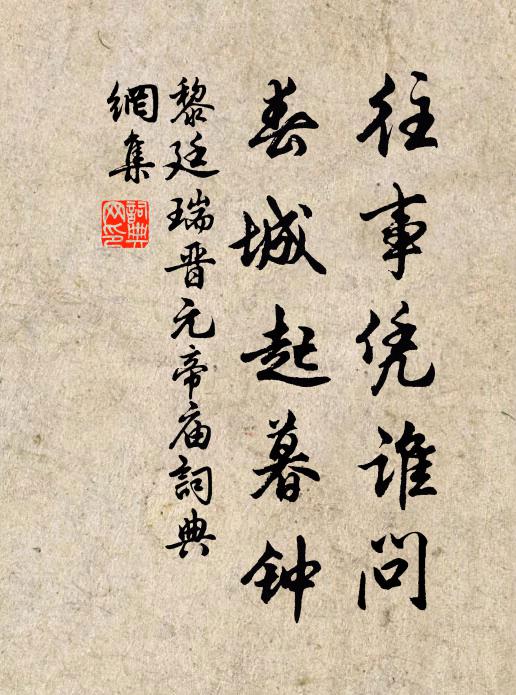 往事凭谁问
春城起暮钟
黎廷瑞晋元帝庙詞典
網集
詞典
网印